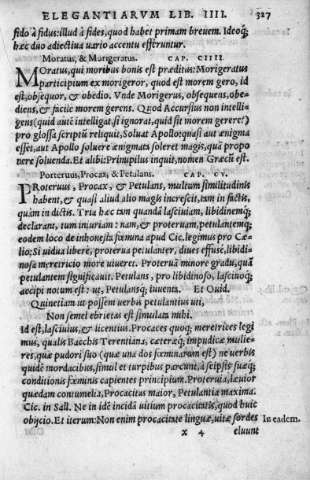 ELEGANTIARVM LIB. IIII. 327
fido à fidus: illud à fides, quod habet primam breuem. Ideoq́;
hæc duo adiectiua uario accentu efferuntur.
Moratus, & Morigeratus. CAP. CIIII.
MOratus, qui moribus bonis est præditus: Morigeratus
participium ex morigeror, quod est morem gero, id
est, obsequor, & obedio. Vnde Morigerus, obsequens, obe-
diens, & sicut morem gerens. Quod Accursius non intelli-
gens (quid aūt intelligat, si ignorat, quid sit morem gerere?)
pro glossa scriptū reliquit, Soluat Apollo: quasi aut ænigma
esset, aut Apollo soluere ænigmata soleret magis, quà propo
nere soluenda. Et alibi: Primipilus inquit, nomen Græcū est.
Porteruus, Procax, & Petulans. CAP. CV.
PRoteruus, Procax, & Petulans, multum similitudinis
habent, & quasi aliud alio magis increscit, tum in factis,
quàm in dictis. Tria hæc tum quandā lasciuiam, libidinemq́;
declarant, tum iniuriam: nam, & proteruam, petulantemq́;
eodem loco de inhonesta fœmina apud Cic. legimus pro Cæ-
lio; Si uidua liberè, proterua petulanter, diues effusè, libidi-
nosa meretricio more uiueret. Proteruā minore gradu, quā
petulantem significauit. Petulans, pro libidinoso, lasciuoq́;
accipi notum est: ut, Petulansq́; iuuenta. Et Ouid.
Quinetiam ut possem uerbis petulantius uti,
Non semel ebrietas est simulata mihi.
Id est, lasciuius, & licentius. Procaces quoq; meretrices legi
mus, qualis Bacchis Terentiana, cæteræq́; impudicæ mulie-
res, quæ pudori suo (quæ una dos fœminarum est) ne uerbis
quidē mordacibus, simul et turpibus parcunt, à seipsis suæq́;
conditionis fœminis capientes principium. Proteruia, leuior
quædam contumelia, Procacitas maior, Petulantia maxima.
Cic. in Sall. Ne in idē incidā uitium procacitatis, quod huic
obijcio. Et iterum: Non enim procacitate linguæ, uitæ sordes In eadem.
x 4 eluunt